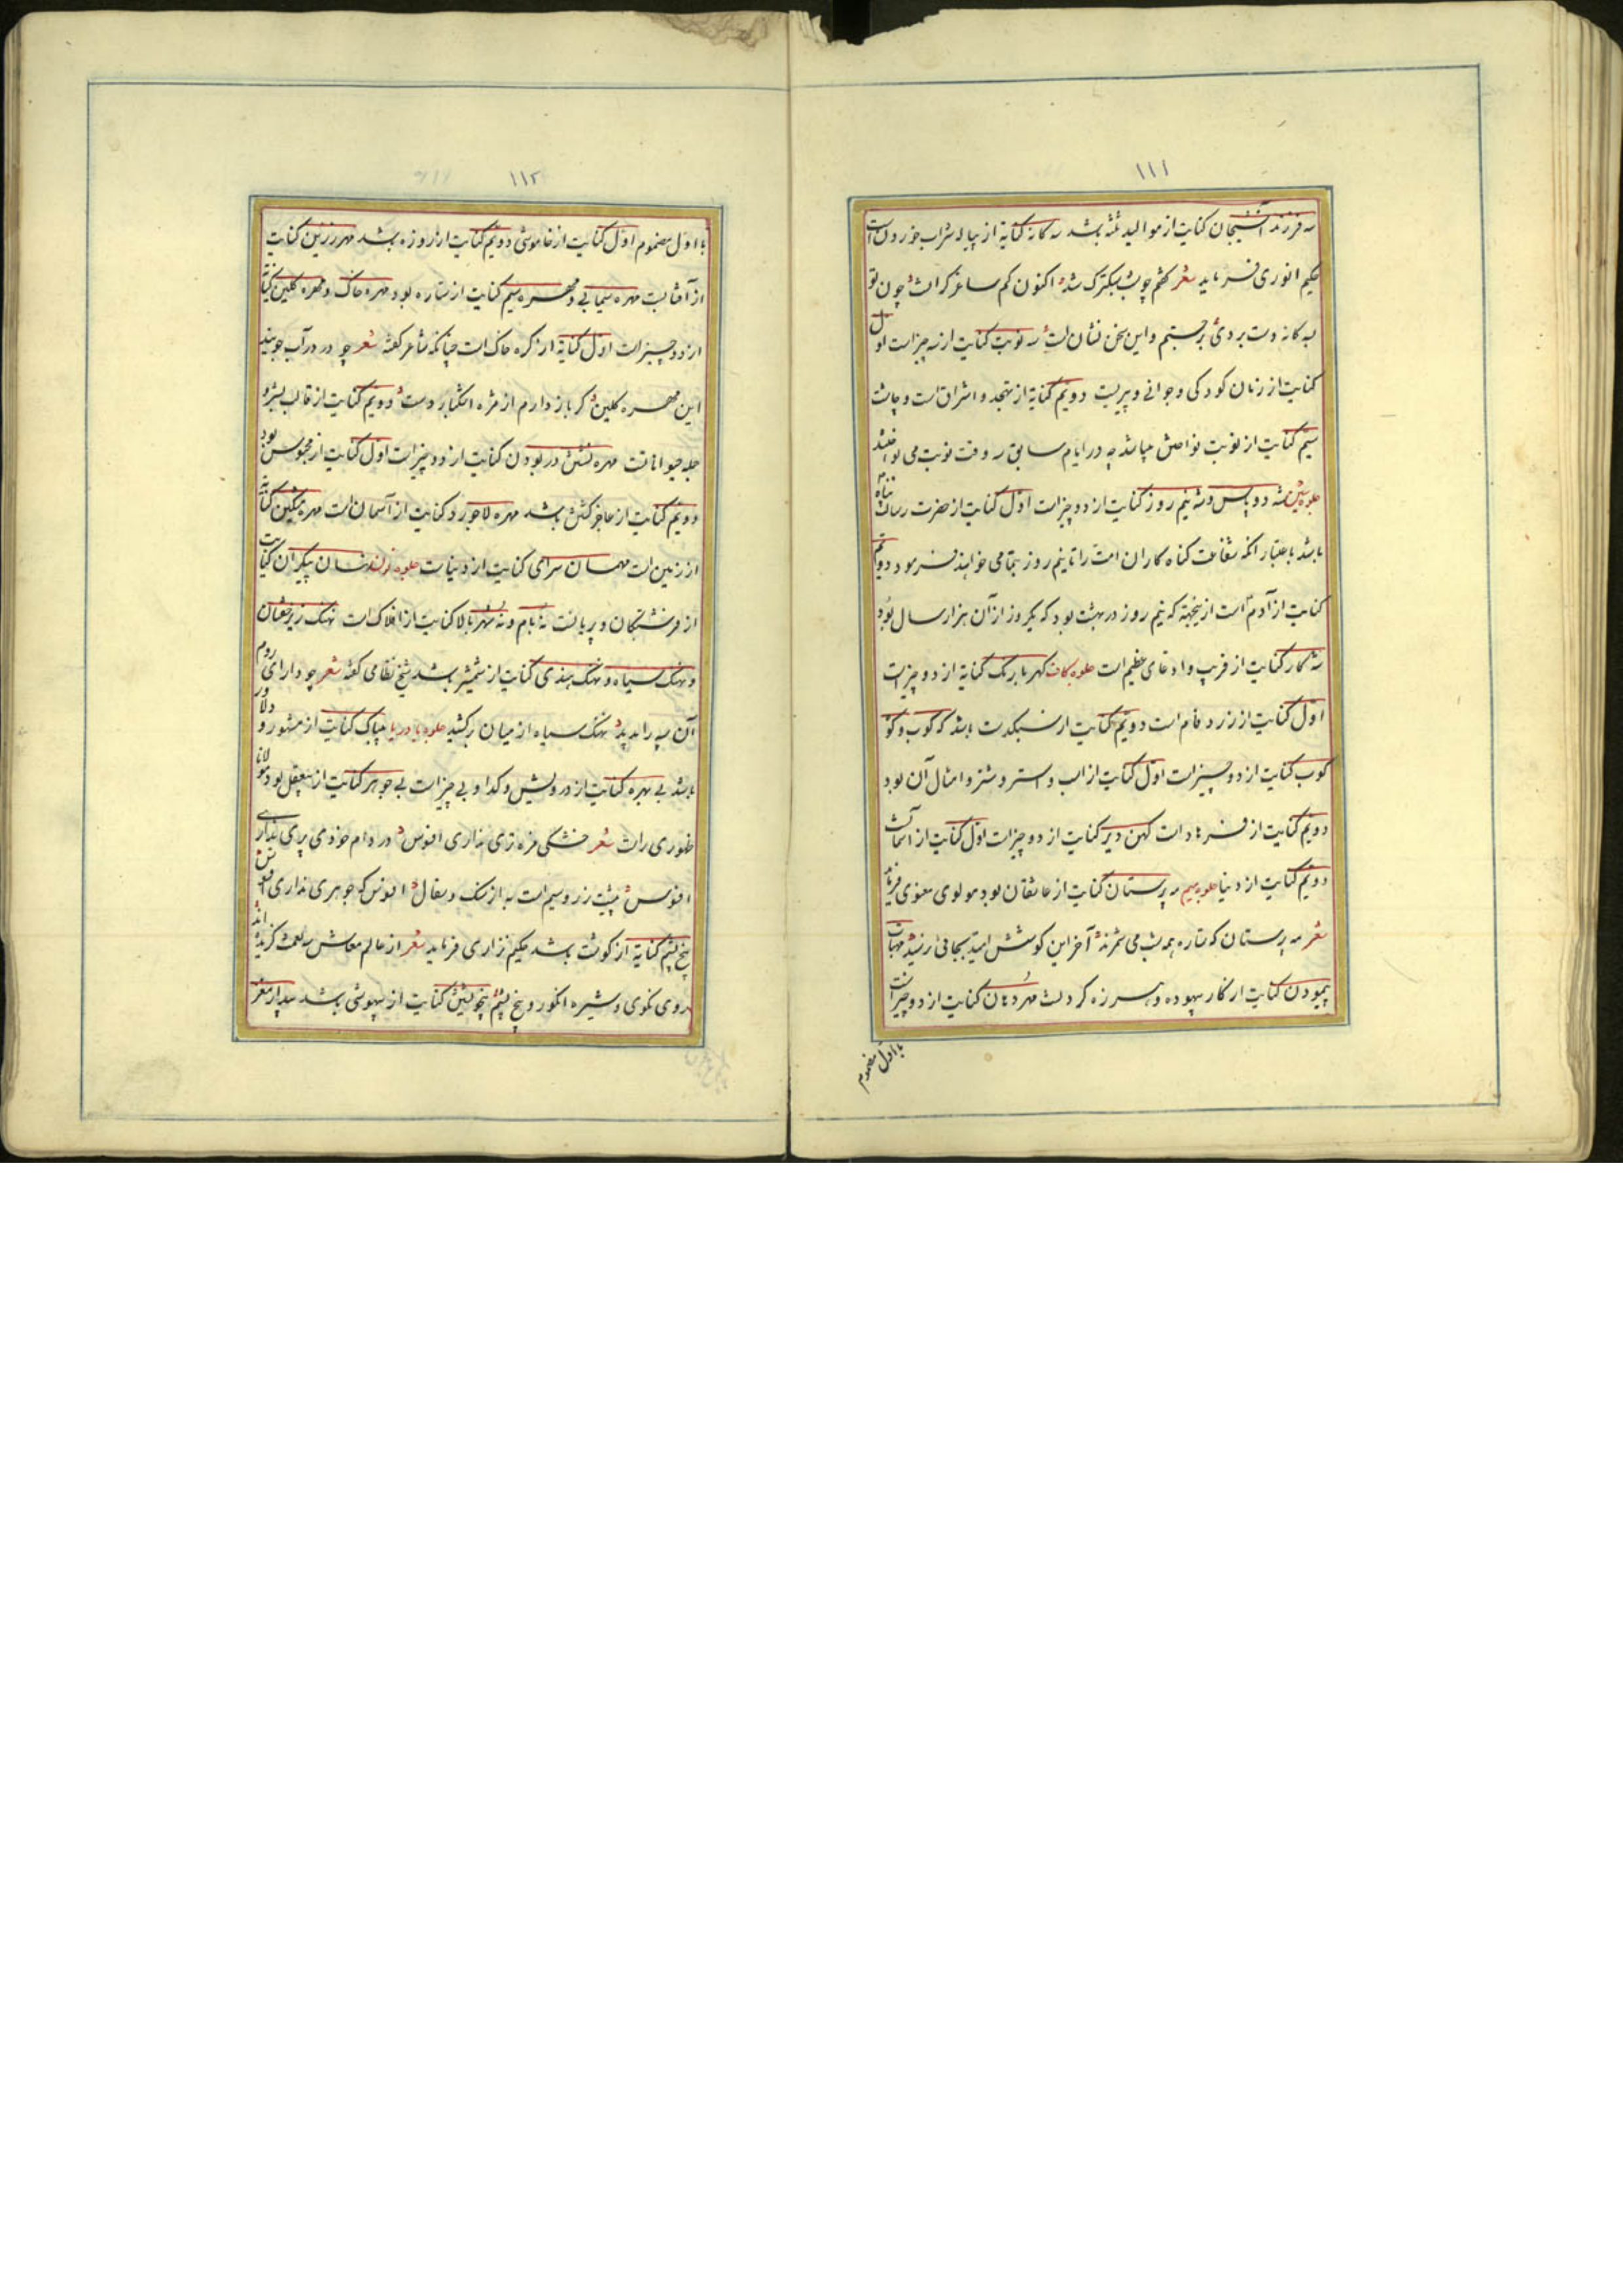 ۱۱۱
سه فرزند آخشیجان کنایت از موالید ثلثه باشد سه کانه کنایة از پیاله شراب خوردن است
حکیم انوری فرماید شعر کفتم چو شب سبکترک شد اکنون کم ساغر کران چون تو
به کانه دست بردی برجستم و این سخن نشان است سه نوبت کنایت از سه چیز است اول
کنایت از زمان کودکی و جوانی و پیریست دویم کنایة از تهجد و اشراق است و چاشت
سیم کنایت از نوبت نواختن میباشد چه در ایام سابق سه وقت نوبت می نواختند
جلوه شین شه دو پاس و شه نیم روز کنایت از دو چیز است اول کنایت از حضرت رسالت پناه
باشد باعتبار انکه شفاعت کناه کاران امت را تا نیم روز بتمامی خواهند فرمود دویم
کنایت از آدم است ازینجهته که نیم روز در بهشت بود که یکروز از آن هزار سال بود
شه کار کنایت از فریب و ادعای عظیم است جلوه کاف کهربا رنک کنایة از دو چیز است
اول کنایت از زرد فام است دویم کنایت از سبکدست باشد که کوب و کو
کوب کنایت از دو چیز است اول کنایت از اسب و استر و شتر و امثال آن بود
دویم کنایت از فرهاد است کهن دیر کنایت از دو چیز است اول کنایت از آسمانست
دویم کنایت از دنیا جلوه میم مه پرستان کنایت از عاشقان بود مولوی معنوی فرماید
شعر مه پرستان که ستاره همه شب می شمرند آخر این کوشش امید بجائی رسید مهتاب
پیمودن کنایت از کار بیهوده و هرزه کردنست مهر دهان کنایت از دو چیز است
با اول مضموم
۱۱۲
با اول مضموم اول کنایت از خاموشی دویم کنایت از روزه باشد مهر زرین کنایت
از آفتابست مهره سیمابی و مهره سیم کنایت از ستاره بود مهره خاک و مهره کلین کنایة
از دو چیز است اول کنایة از کره خاک است چنانکه شاعر کفته شعر چو در در آب جویند
این مهره کلین کر باز دارم از مژه اشکبار دست دویم کنایت از قالب بشر و
جله حیوانات مهره ششدر بودن کنایت از دو چیز است اول کنایت از محبوس بود
دویم کنایت از عاجز کشتن باشد مهره لاجورد کنایت از آسمان است مهره مشکین کنایة
از زمین است مهمان سرای کنایت از دنیاست جلوه نون نهان پیکران کنایت
از فرشتکان و پریانست نه بام و نه شهر بالا کنایت از افلاک است نهنک زیر خفتان
و نهنک سیاه و نهنک هندی کنایت از شمشیر باشد شیخ نظامی کفته شعر چو دارای روم
آن سپه را بدید نهنک سیاه از میان برکشید جلوه یا دریا بیباک کنایت از مشهور و دلاور
باشد بی بهره کنایت از درویش و کدا و بی چیز است بی جوهر کنایت از بیعقل بود مولانا
ظهوری راست شعر خشکی مژه تری نداری افسوس در دام خودی پری نداری
افسوس پیشت زر و سیم است به از سنک و سفال افسوس که جوهری نداری افسوس
یخ پشم کنایة از کوشت باشد حکیم نزاری فرماید شعر از عالم معاش سه نعمت کزیده اند
روی نکوی و شیره انکور و یخ پشم کنایت از بیهوشی باشد